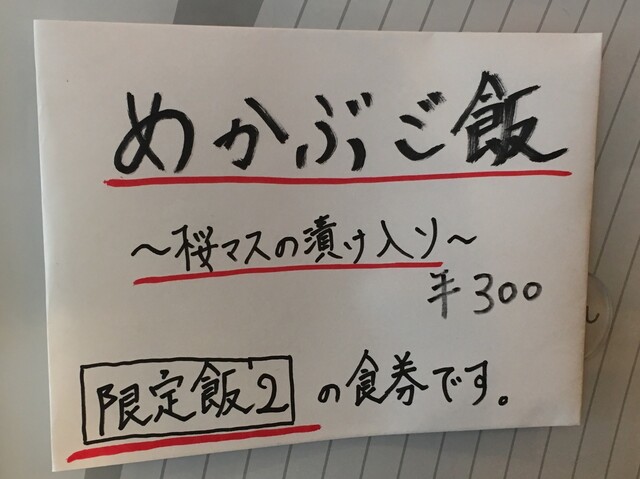 めかぶご飯
～桜マスの漬け入り～
¥300
限定飯2の食券です。